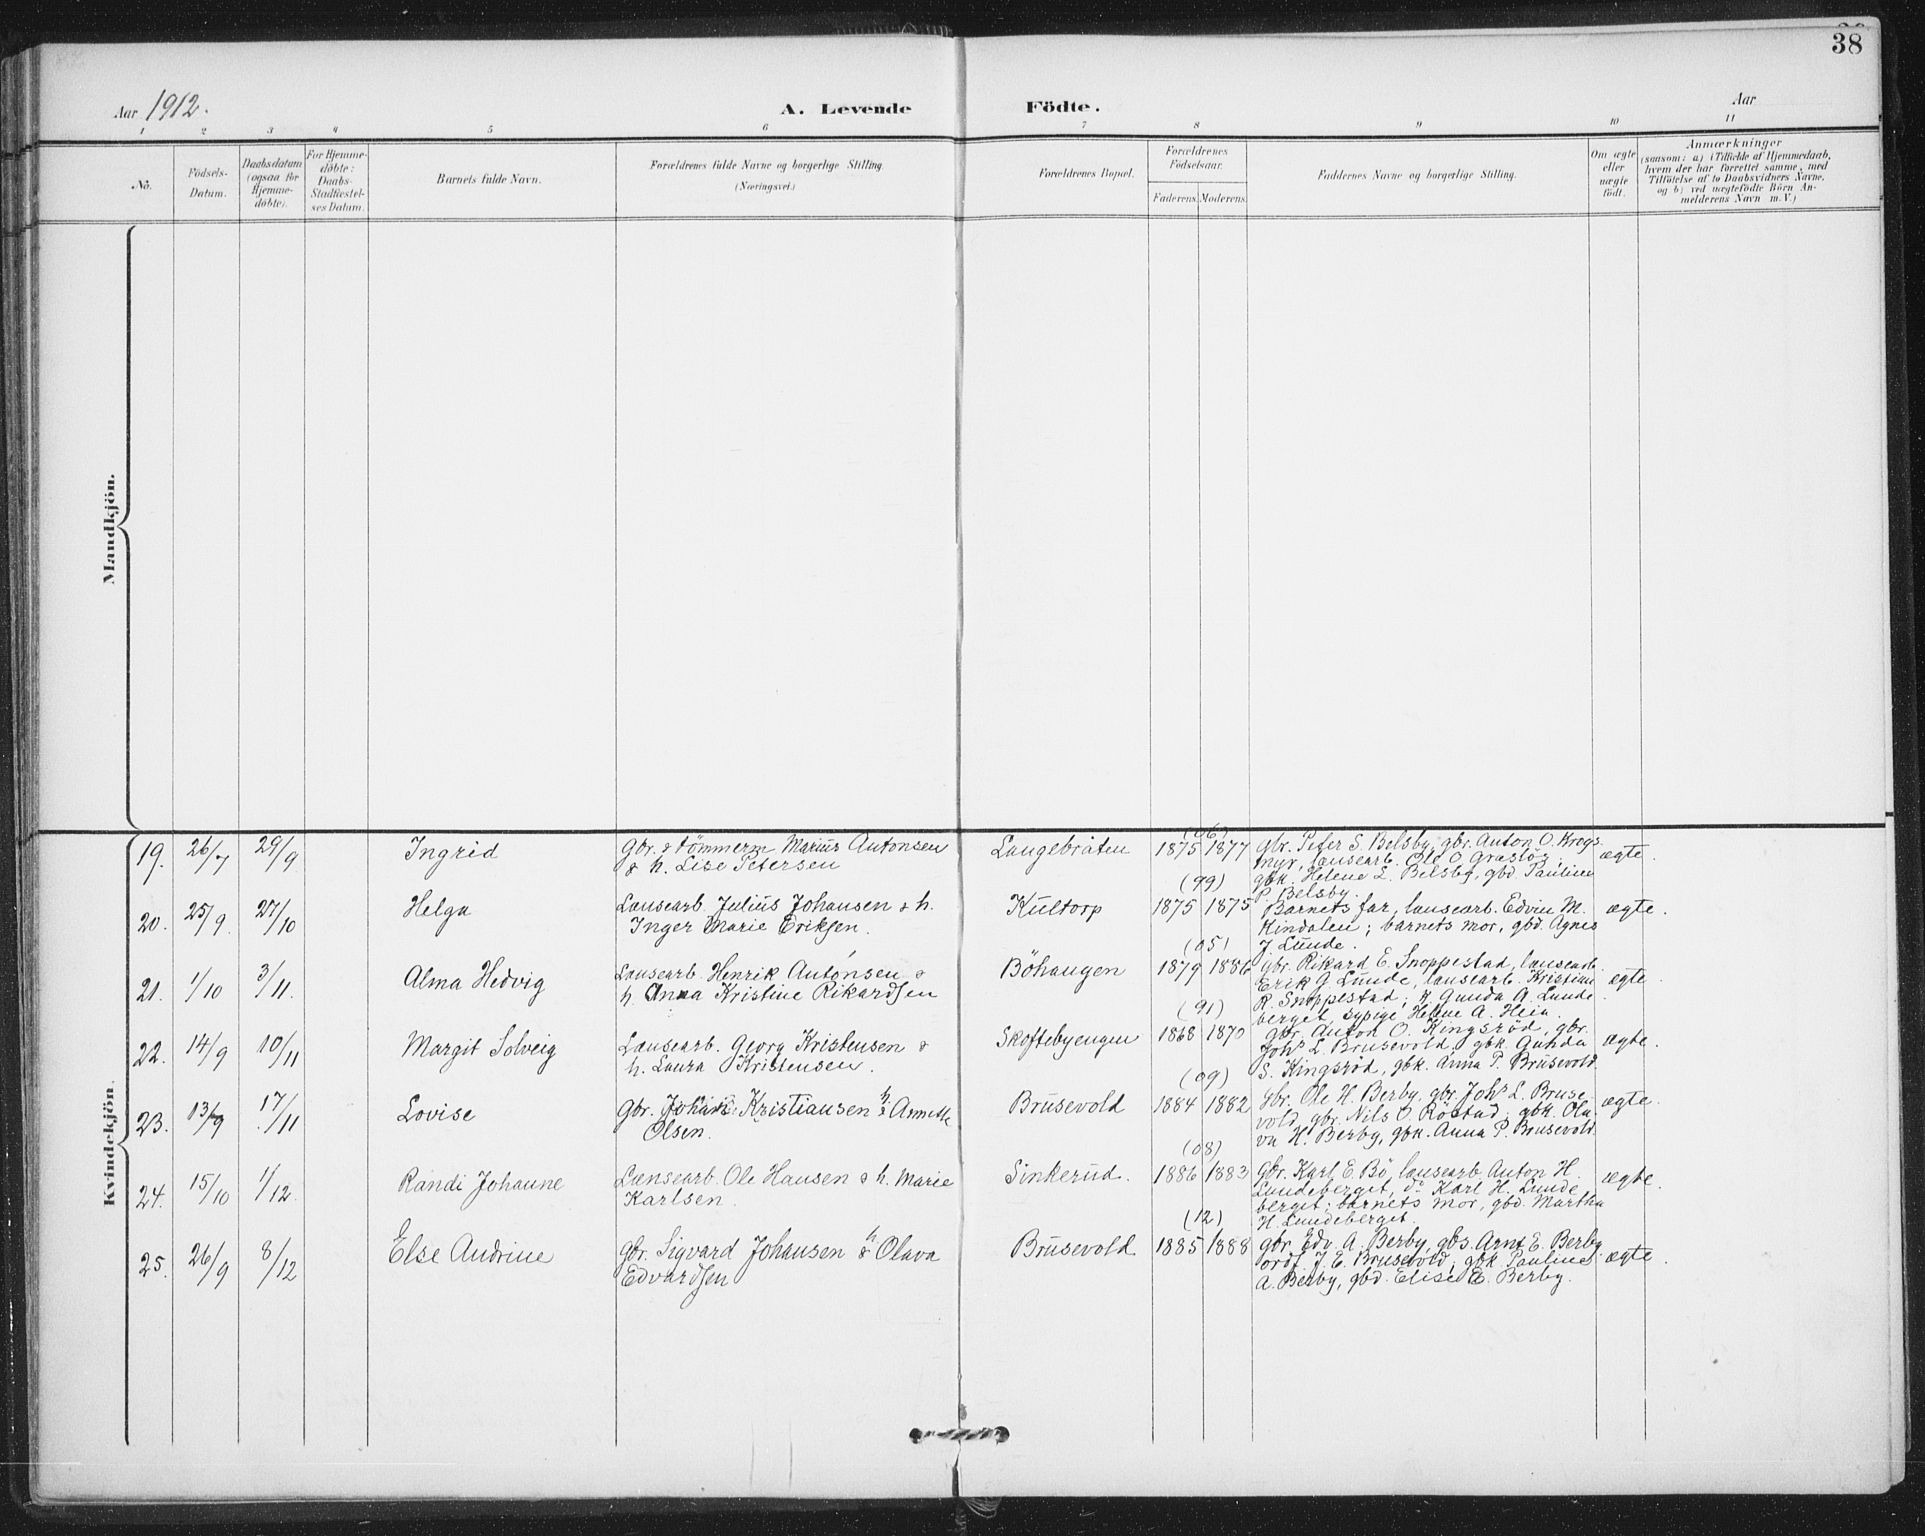 38
Aar 1912.
A. Levende Födte.
Aar
1 2 3 4 5 6 7 8 9 10 11
No.
Födsels-
Datum.
Daabsdatum
(ogsaa for
Hjemme-
døbte).
For Hjemme-
døbte:
Daabs-
Stadfæstel-
ses Datum.
Barnets fulde Navn.
Forældrenes fulde Navne og borgerlige Stilling.
(Næringsvei.)
Forældrenes Bopæl.
Forældrenes
Födselsaar.
Faderens. Moderens.
Faddernes Navne og borgerlige Stilling.
Om ægte
eller
uægte
födt.
Anmærkninger
(saasom: a) i Tilfælde af Hjemmedaab,
hvem der har forrettet samme, med
Tilföielse af to Daabsvidners Navne,
og b) ved uægtefödte Börn An-
melderens Navn m. V.)
Mandkjön.
Kvindekjön.
19. 26/7 29/9 Ingrid
Gbr. & tömmerm Marius Antonsen
& h. Lise Petersen
Langebråten
(06)
1875 1877
gbr. Peter S. Belsby, gbr. Anton O. Krogs
myr, lausearb. Ole O
gbk. Helene L. Belsby, gbd Pauline
P. Belsby.
ægte.
20. 25/9 27/10 Helga
Lausearb. Julius Johansen & h.
Inger Marie Eriksen.
Kultorp
(99)
1875 1875
Barnets far, lausearb. Edvin M.
Kindalen; barnets mor, gbd. Agnes
J Lunde.
ægte.
21. 1/10 3/11. Alma Hedvig
Lausearb. Henrik Antonsen &
h. Anna Kristine Rikardsen
Böhaugen
(05)
1879 1886
gbr. Rikard E. Snoppestad, lausearb.
Erik G Lunde, lausearb. Kristian
R. Snoppestad; k. Gunda A. Lunde
berget, sypige Helene A. Heia.
ægte.
22. 14/9 10/11 Margit Solveig
Lausearb. Georg Kristensen &
h. Laura Kristensen.
Skoftebyengen
(91)
1868 1870
gbr. Anton O. Kingsrød, gbr.
Johs L. Brusevold. gbk. Gunda
S. Kingsrød, gbk. Anna P. Brusevold
ægte.
23. 13/9 17/11 Lovise
Gbr. Johan Kristiansen & h Annette
Olsen.
Brusevold
(09)
1884 1882
gbr. Ole H. Berby, gbr. Johs L. Bruse-
vold, gbr. Nils O. Röstad; gbk. Ola-
va H. Berby, gbk. Anna P. Brusevold
ægte.
24. 15/10 1/12. Randi Johanne
Lausearb. Ole Hansen & h. Marie
Karlsen.
Sinkerud.
(08)
1886 1883
gbr. Karl E. Bö, lausearb. Anton H.
Lundeberget, do Karl H. Lunde
berget; barnets mor, gbd. Martha
H. Lundeberget.
ægte.
25. 26/9 8/12 Else Andrine
Gbr. Sigvard Johansen & h Olava
Edvardsen
Brusevold.
(12)
1885 1888
gbr. Edv. A. Berby, gbs. Arnt E. Berby
ordf. J. E. Brusevold, gbk Pauline
A. Berby, gbd. Elise E. Berby.
ægte.